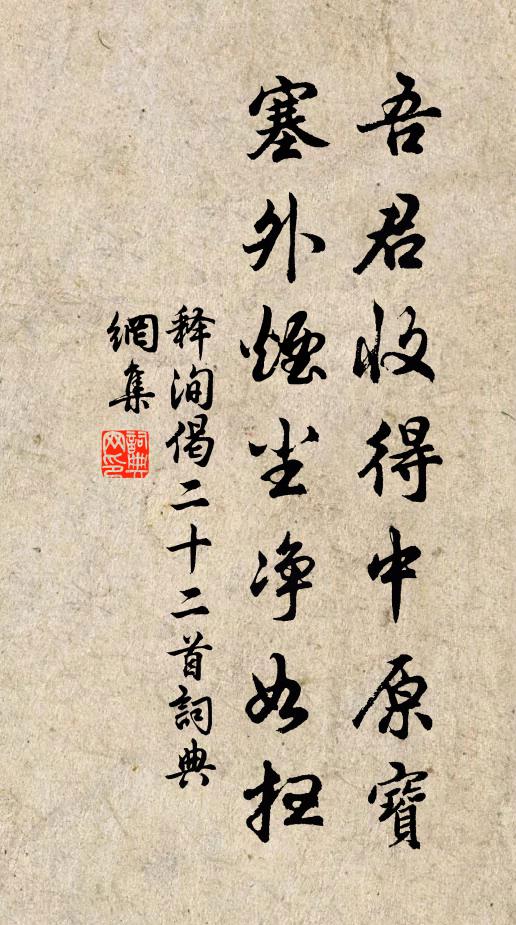 吾君收得中原寶
塞外煙尘净如扫
释洵偈二十二首詞典
網集
詞典网印